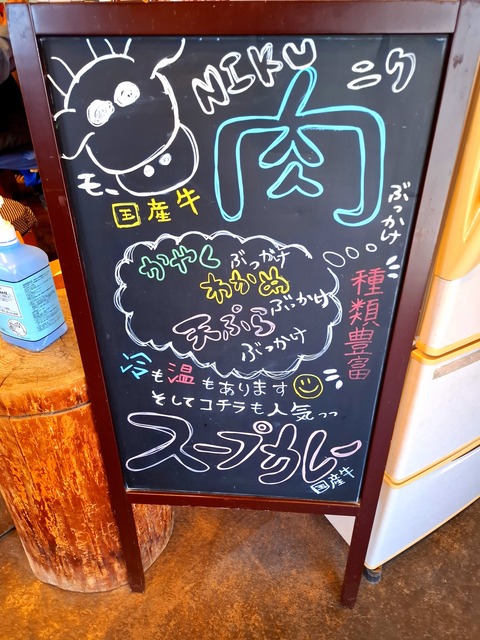 NIKU ニク
肉
モ〜
国産牛
ぶっかけ
種類豊富
かやくぶっかけ
わかめぶっかけ
天ぷらぶっかけ
冷も温もあります
そしてコチラも人気っっ
スープカレー
国産牛